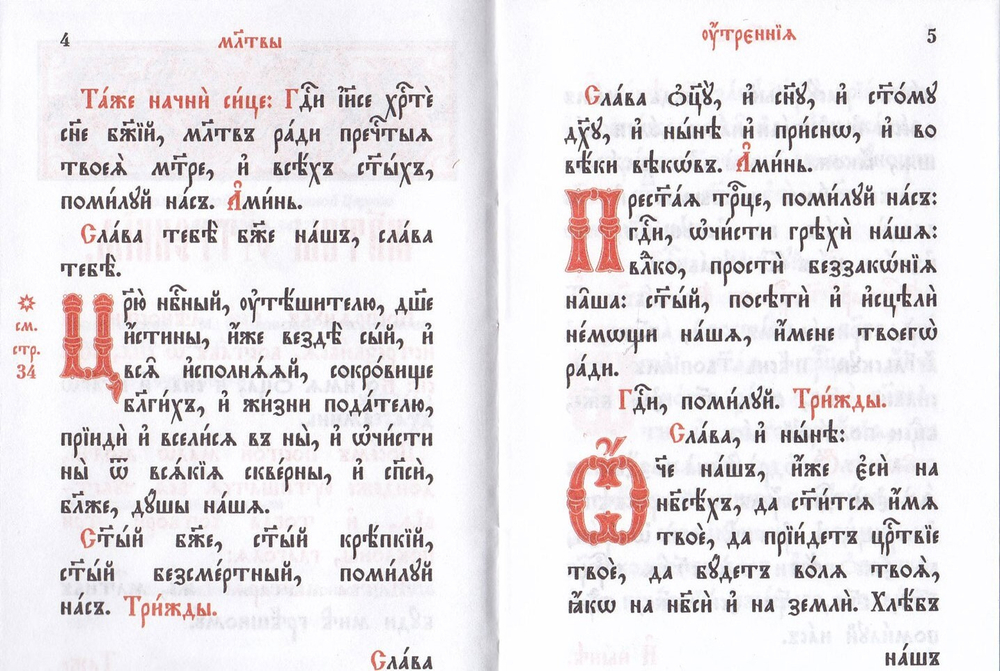 4 мл҃твы
Та́же начнѝ си́це: Гдⷭ҇и і҆и҃се хрⷭ҇тѐ
сн҃е бж҃їй, мл҃твъ ра́ди пречⷭ҇тыѧ
твоеѧ̀ мт҃ре, и҆ всѣ́хъ ст҃ы́хъ,
поми́лꙋй на́съ. А҆ми́нь.
Сла́ва тебѣ̀ бж҃е на́шъ, сла́ва
тебѣ̀.
Цр҃ю̀ нбⷭ҇ный, оу҆тѣ́шителю, дш҃е
и҆́стины, и҆́же вездѣ̀ сы́й, и҆
всѧ̑ и҆сполнѧ́ѧй, сокро́вище
бл҃ги́хъ, и҆ жи́зни пода́телю,
прїидѝ и҆ всели́сѧ въ ны̀, и҆ ѡ҆чи́сти
ны̀ ѿ всѧ́кїѧ скве́рны, и҆ сп҃сѝ,
бл҃же, дꙋ́шы на́шѧ.
Ст҃ы́й бж҃е, ст҃ы́й крѣ́пкїй,
ст҃ы́й безсме́ртный, поми́лꙋй
на́съ. Три́жды.
Сла́ва
см.
стр.
34
оу҆́треннїѧ 5
Сла́ва ѻ҆ц҃ꙋ̀, и҆ сн҃ꙋ, и҆ ст҃о́мꙋ
дх҃ꙋ, и҆ ны́нѣ и҆ при́снѡ, и҆ во
вѣ́ки вѣкѡ́въ. А҆ми́нь.
Прест҃а́ѧ трⷪ҇це, поми́лꙋй на́съ:
гдⷭ҇и, ѡ҆чи́сти грѣхѝ на́шѧ:
влⷣко, простѝ беззакѡ́нїѧ
на̑ша: ст҃ы́й, посѣтѝ и҆ и҆сцѣлѝ
не́мѡщи на́шѧ, и҆́мене твоегѡ̀
ра́ди.
Гдⷭ҇и, поми́лꙋй. Три́жды.
Сла́ва, и҆ ны́нѣ:
Ѻ҆́ч҃е на́шъ, и҆́же є҆сѝ на
нб҃сѣ́хъ, да ст҃и́тсѧ и҆́мѧ
твоѐ, да прїи́детъ црⷭ҇твїе
твоѐ, да бꙋ́детъ во́лѧ твоѧ̀,
ꙗ҆́кѡ на нб҃сѝ и҆ на землѝ. Хлѣ́бъ
на́шъ